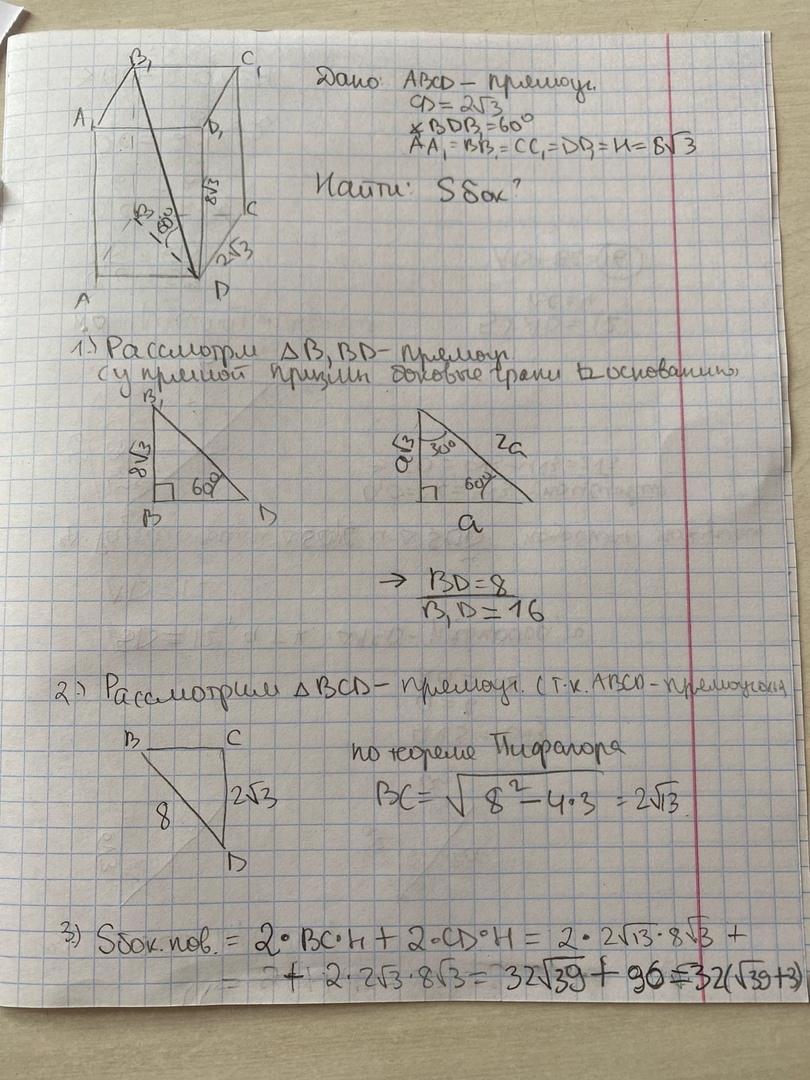 B₁ C₁
A D₁
8√3
B 60° C
2√3
A D
Дано: ABCD – прямоуг.
CD = 2√3
∡BDB₁ = 60°
AA₁ = BB₁ = CC₁ = DD₁ = H = 8√3
Найти: Sбок?
1.) Рассмотрм △B₁BD – прямоуг
(у прямой призмы боковые грани ⊥ основанию)
B₁
8√3 60°
B D
a√3 30° 2a
60°
a
→ BD = 8
B₁D = 16
2.) Рассмотрим △BCD – прямоуг. (т.к. ABCD – прямоугольн
B C
8 2√3
D
по теореме Пифагора
BC = √8² – 4·3 = 2√13.
3.) Sбок.пов. = 2·BC·H + 2·CD·H = 2·2√13·8√3 +
= + 2·2√3·8√3 = 32√39 + 96 = 32(√39+3)